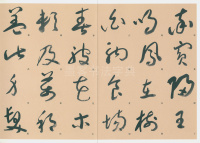 率賓歸王
鳴鳳在樹
白駒食場
化被草木
賴及萬方
蓋此身髮